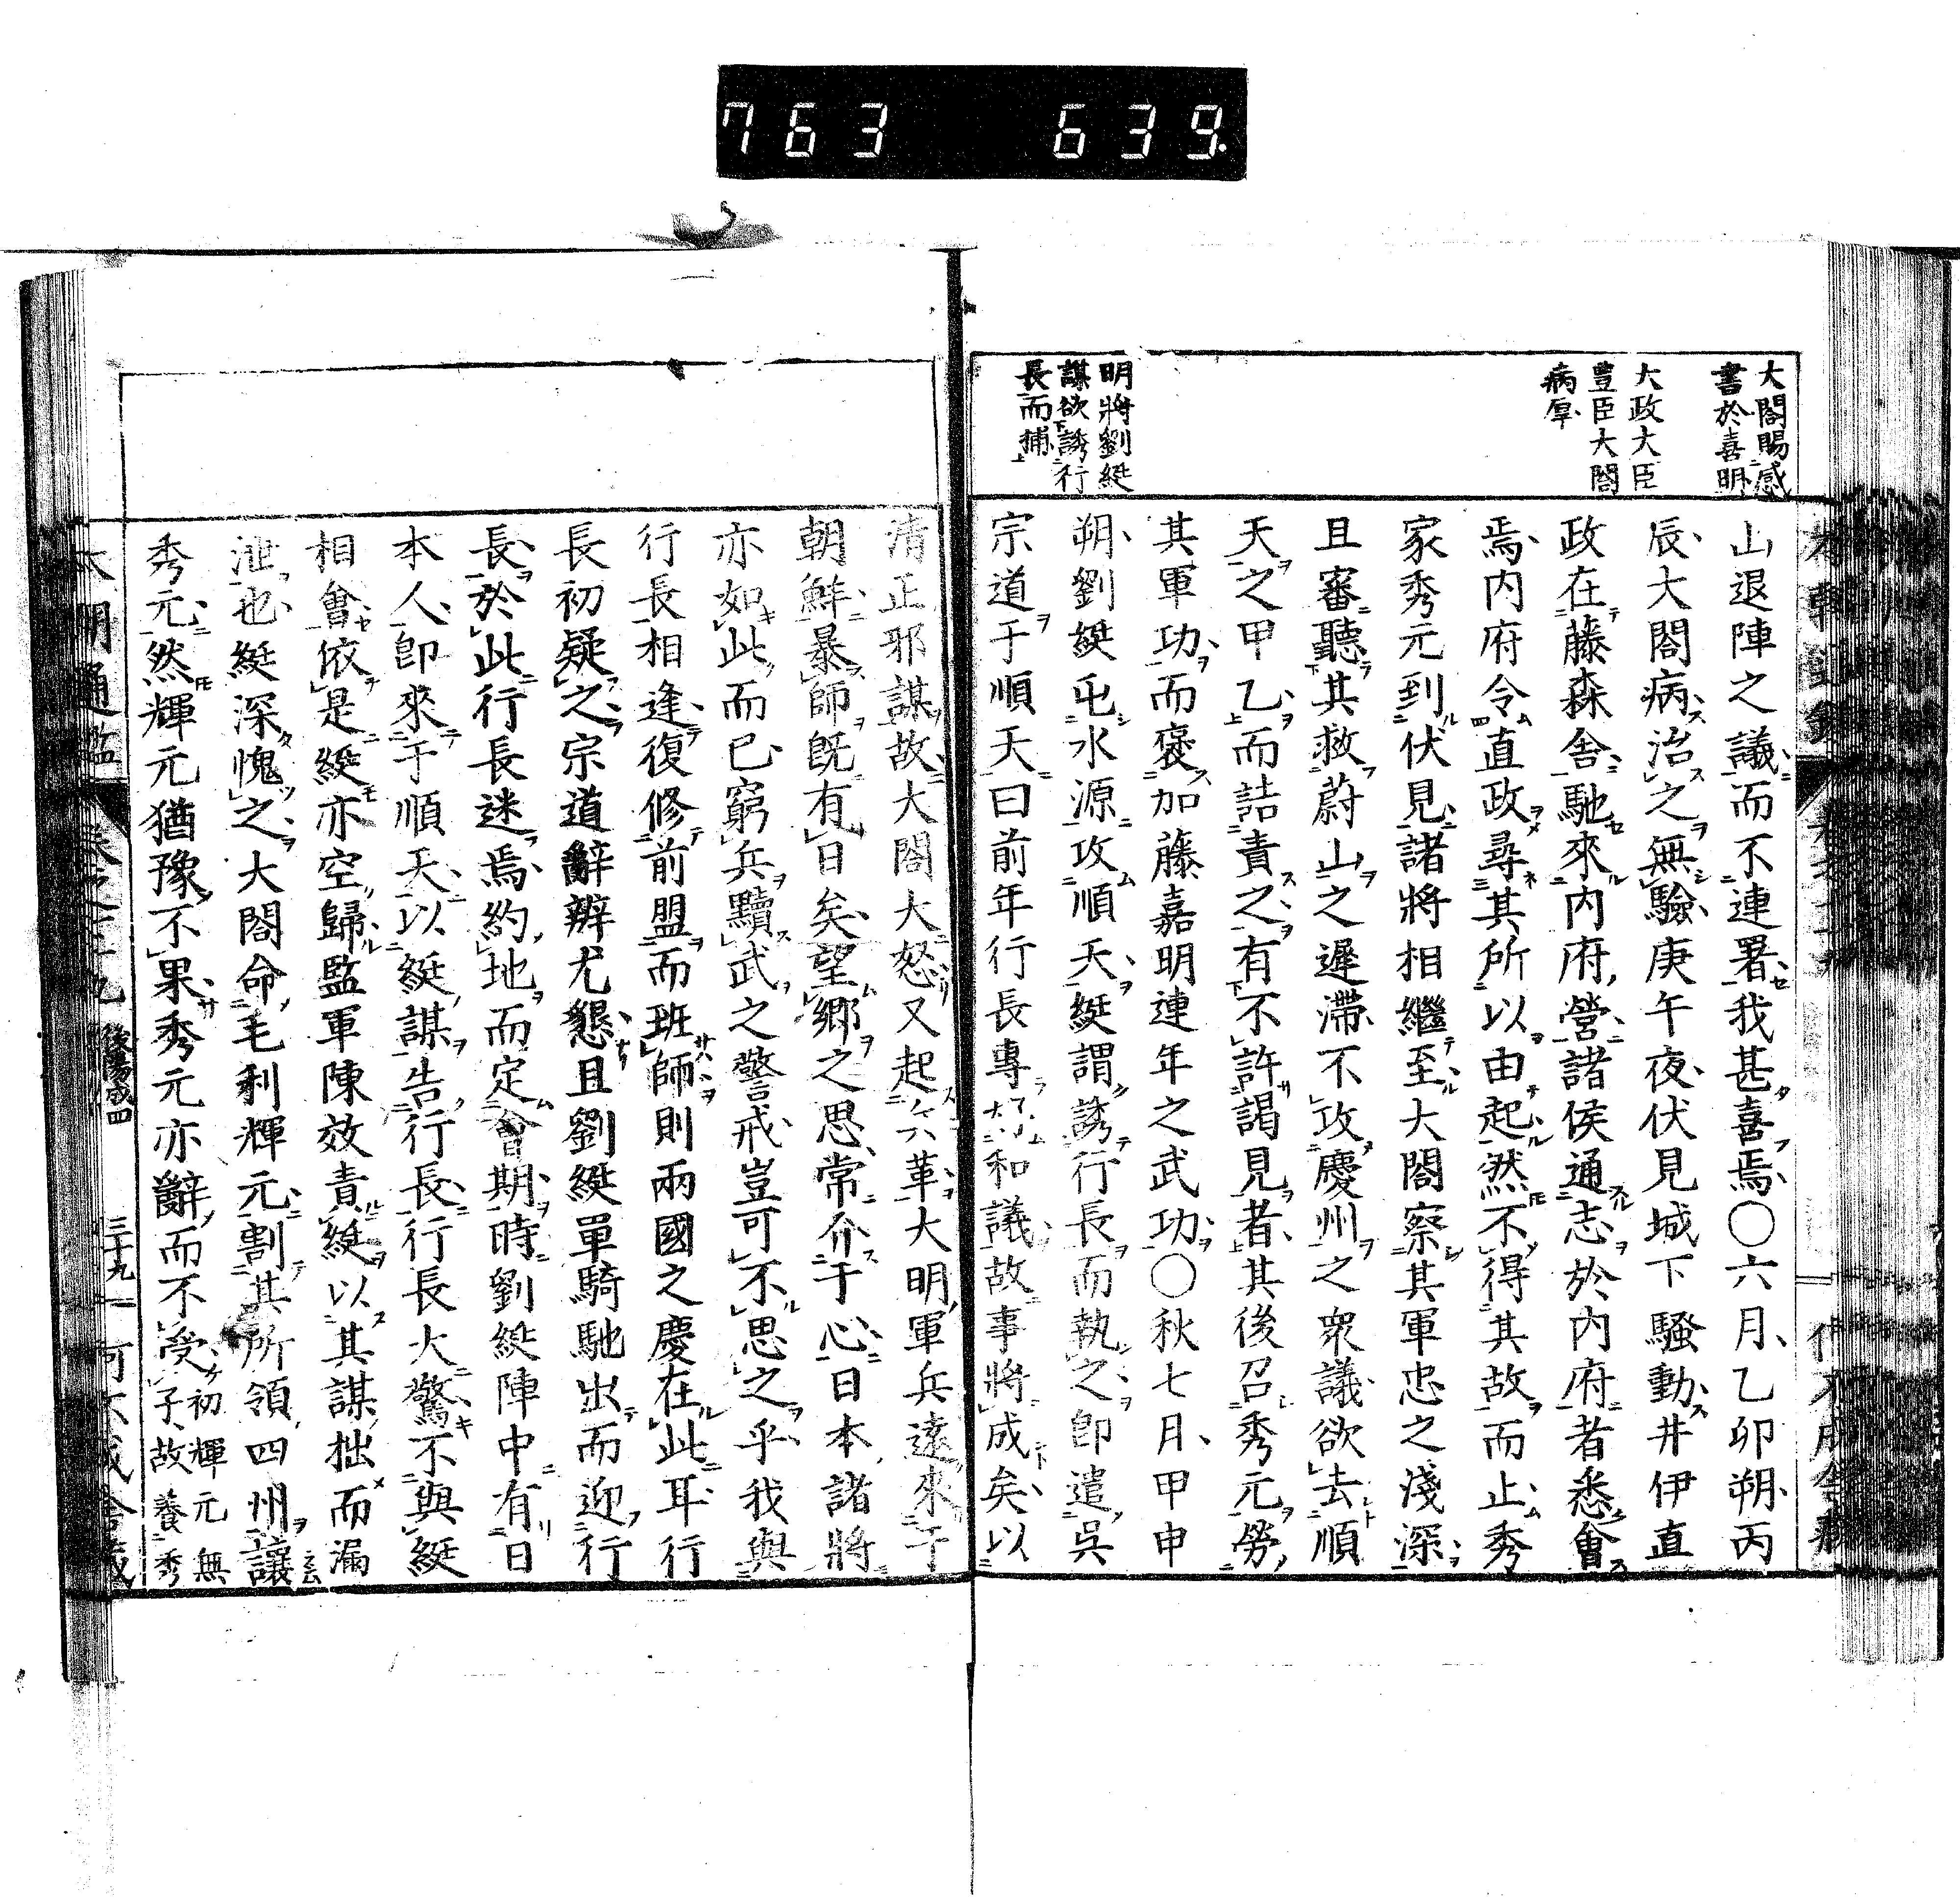 763 639.
大閤賜感
書於喜明
大政大臣
豊臣大閤
病厚
明將劉綎
謀欲誘行
長而捕
山退陣之議而不連署我甚喜焉〇六月乙卯朔丙
辰大閤病治之無驗庚午夜伏見城下騷動井伊直
政在藤森舍馳來内府營諸侯通志於内府者悉會
焉内府令直政尋其所以由起然不得其故而止秀
家秀元到伏見諸將相繼至大閤察其軍忠之淺深
且審聽其救蔚山之遲滯不攻慶州之衆議欲去順
天之甲乙而詰責之有不許謁見者其後召秀元勞
其軍功而襃加藤嘉明連年之武功〇秋七月甲申
朔劉綎屯水源攻順天綎謂誘行長而執之卽遣吳
宗道于順天曰前年行長專好和議故事將成矣以
清正邪謀故大閤大怒又起兵革大明軍兵遠來于
朝鮮暴師既有日矣望郷之思常介于心日本諸將
亦如此而已窮兵黷武之警戒豈可不思之乎我與
行長相逢復修前盟而班師則兩國之慶在此耳行
長初疑之宗道辭辨尤懇且劉綎單騎馳出而迎行
長於此行長迷焉約地而定會期時劉綎陣中有日
本人卽來于順天以綎謀告行長行長大驚不與綎
相會依是綎亦空歸監軍陳效責綎以其謀拙而漏
泄也綎深愧之大閤命毛利輝元割其所領四州讓
秀元然輝元猶豫不果秀元亦辭而不受初輝元無
子故養秀
本朝通鑑 卷之 九 後陽成四 三十九